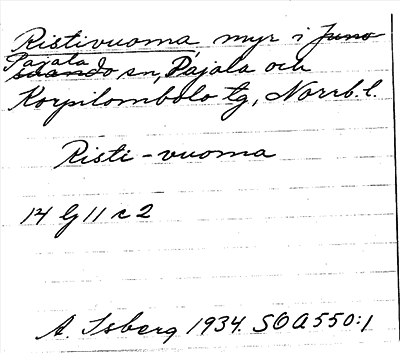 Ristivuoma, myr i Juno
Pajala
suando sn, Pajala och
Korpilombolo tg, Norrb.l.
Risti-vuoma
14 G 11 c 2
A. Isberg 1934. SOA 550:1